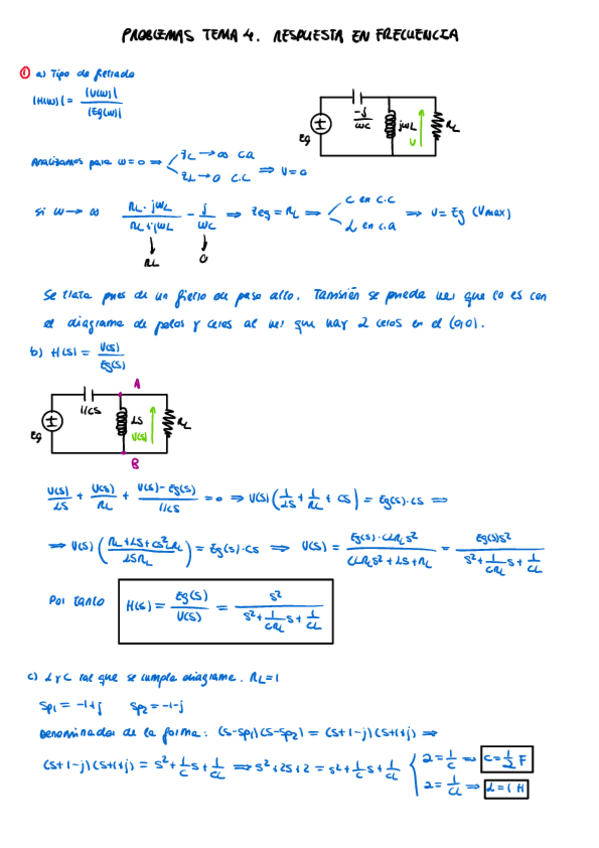 PROBLEMAS TEMA 4. RESPUESTA EN FRECUENCIA
① a) Tipo de filtrado
|H(w)| = |U(w)| / |Eg(w)|
Eg -j/wC jwL U RL
Analizamos para w=0 ⇒ Zc → ∞ CA
ZL → 0 C.C ⇒ U=0
Si w → ∞ RL·jwL / RL+jwL - j/wC ⇒ Zeq = RL ⇒ C en c.c
L en c.a ⇒ U = Eg (Vmax)
RL 0
Se trata pues de un filtro de paso alto. También se puede ver que lo es con
el diagrama de polos y ceros al ver que hay 2 ceros en el (0,0).
b) H(s) = U(s) / Eg(s)
A
1/CS
Eg LS U(s) RL
B
U(s)/LS + U(s)/RL + U(s)-Eg(s) / 1/CS = 0 ⇒ U(s) (1/LS + 1/RL + CS) = Eg(s)·CS ⇒
⇒ U(s) (RL+LS+CS²LRL / LSRL) = Eg(s)·CS ⇒ U(s) = Eg(s)·CLRLS² / CLRLS²+LS+RL = Eg(s)S² / S²+1/CRL S+1/CL
Por tanto H(s) = Eg(s) / U(s) = S² / S²+1/CRL S+1/CL
c) L y C tal que se cumpla diagrama. RL=1
Sp1 = -1+j Sp2 = -1-j
Denominador de la forma: (S-Sp1)(S-Sp2) = (S+1-j)(S+1+j) ⇒
(S+1-j)(S+1+j) = S²+1/C S+1/CL ⇒ S²+2S+2 = S²+1/C S+1/CL { 2 = 1/C ⇒ C=1/2 F
2 = 1/CL ⇒ L=1 H